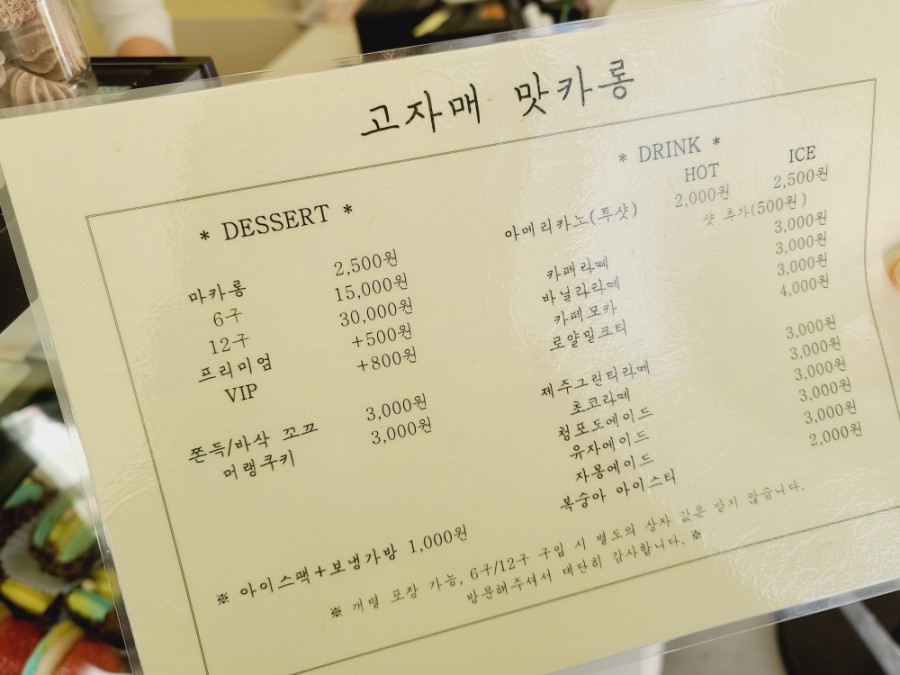 고자매 맛카롱
* DESSERT *
마카롱 2,500원
6구 15,000원
12구 30,000원
프리미엄 +500원
VIP +800원
쫀득/바삭 꼬끄 3,000원
머랭쿠키 3,000원
* DRINK *
HOT ICE
아메리카노(투샷) 2,000원 2,500원
샷 추가(500원)
카페라떼 3,000원
바닐라라떼 3,000원
카페모카 3,000원
로얄밀크티 4,000원
제주그린티라떼 3,000원
초코라떼 3,000원
청포도에이드 3,000원
유자에이드 3,000원
자몽에이드 3,000원
복숭아 아이스티 2,000원
※ 아이스팩+보냉가방 1,000원
※ 개별 포장 가능, 6구/12구 구입 시 별도의 상자 값은 받지 않습니다.
방문해주셔서 대단히 감사합니다. ※